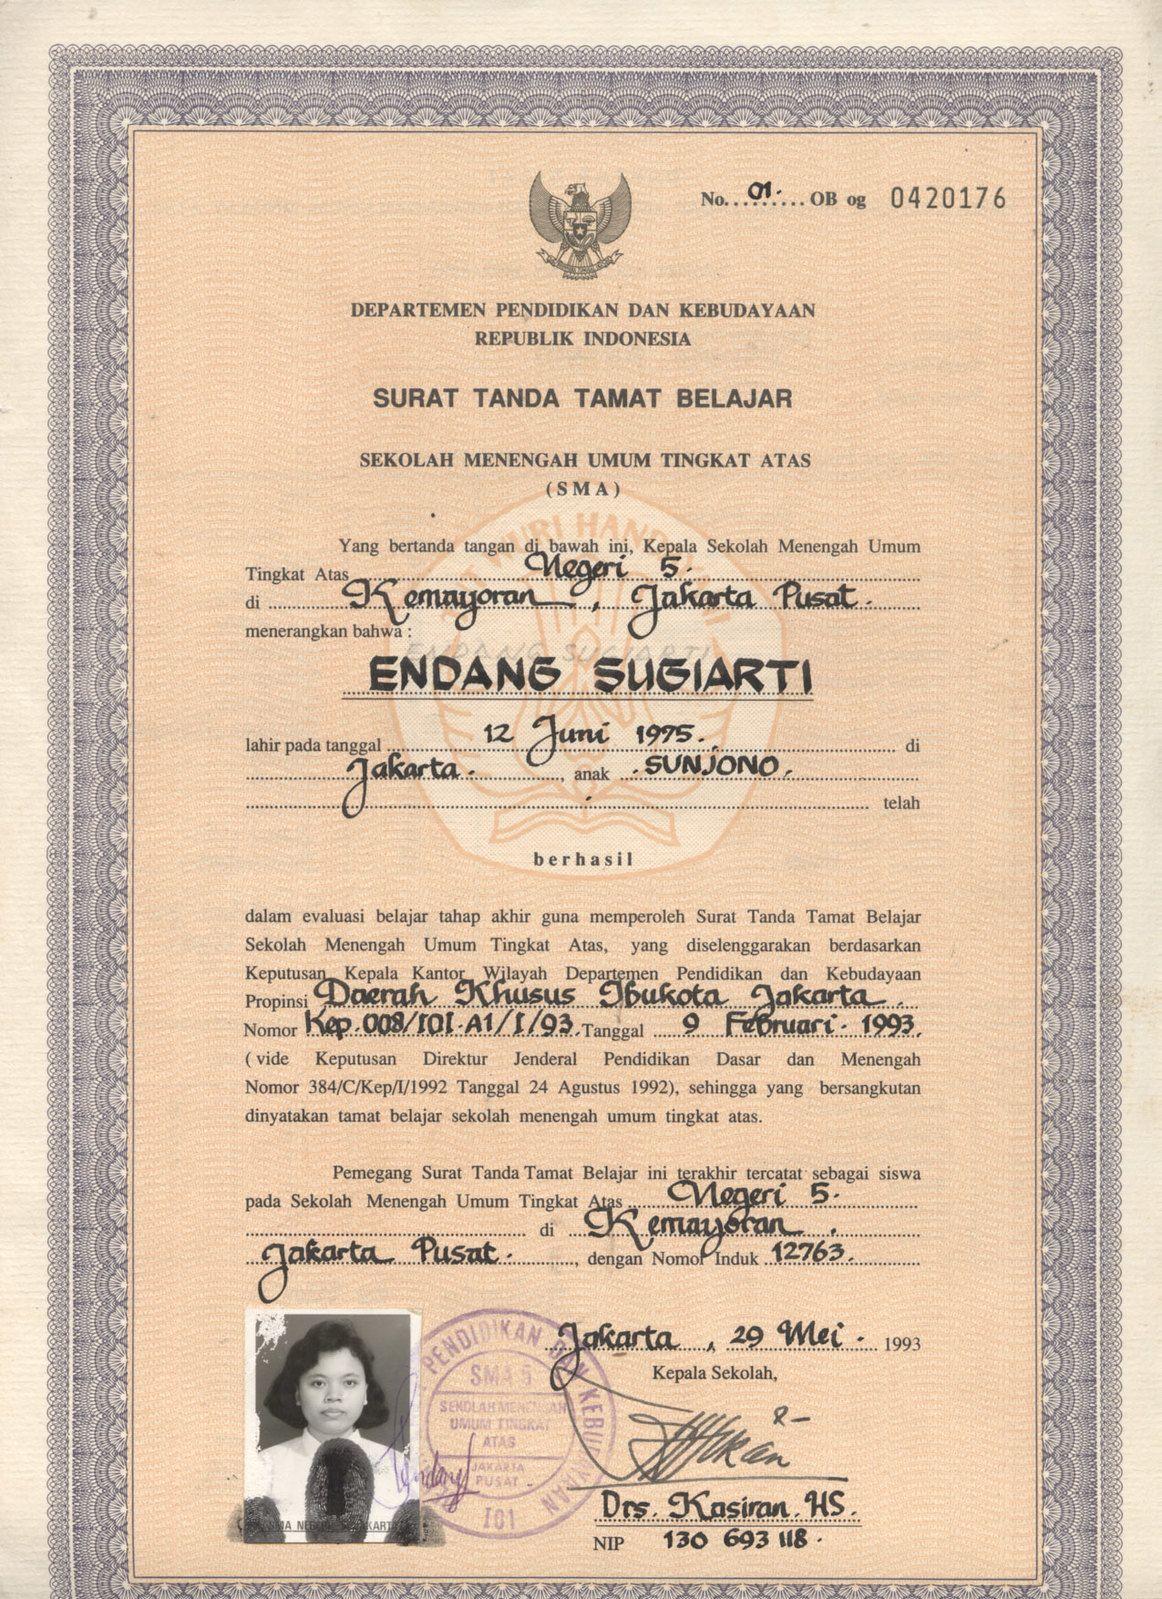 No. 01. OB og 0420176
DEPARTEMEN PENDIDIKAN DAN KEBUDAYAAN
REPUBLIK INDONESIA
SURAT TANDA TAMAT BELAJAR
SEKOLAH MENENGAH UMUM TINGKAT ATAS
(SMA)
Yang bertanda tangan di bawah ini, Kepala Sekolah Menengah Umum
Tingkat Atas Negeri 5.
di Kemayoran, Jakarta Pusat.
menerangkan bahwa :
ENDANG SUGIARTI
ENDANG SUGIARTI
lahir pada tanggal 12 Juni 1975. di
Jakarta. , anak SUNJONO.
telah
berhasil
dalam evaluasi belajar tahap akhir guna memperoleh Surat Tanda Tamat Belajar
Sekolah Menengah Umum Tingkat Atas, yang diselenggarakan berdasarkan
Keputusan Kepala Kantor Wilayah Departemen Pendidikan dan Kebudayaan
Propinsi Daerah Khusus Ibukota Jakarta.
Nomor Kep.008/I01.A1/I/93. Tanggal 9 Februari. 1993.
( vide Keputusan Direktur Jenderal Pendidikan Dasar dan Menengah
Nomor 384/C/Kep/I/1992 Tanggal 24 Agustus 1992), sehingga yang bersangkutan
dinyatakan tamat belajar sekolah menengah umum tingkat atas.
Pemegang Surat Tanda Tamat Belajar ini terakhir tercatat sebagai siswa
pada Sekolah Menengah Umum Tingkat Atas Negeri 5.
di Kemayoran.
Jakarta Pusat. , dengan Nomor Induk 12763.
Jakarta, 29 Mei. 1993
Kepala Sekolah,
PENDIDIKAN DAN KEBUDAYAAN
SMA 5
SEKOLAH MENENGAH
UMUM TINGKAT
ATAS
JAKARTA
PUSAT
I01
Drs. Kasiran. HS.
NIP 130 693 118.